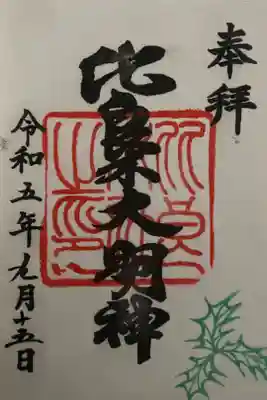 奉拝
比良木大明神
令和五年九月十五日